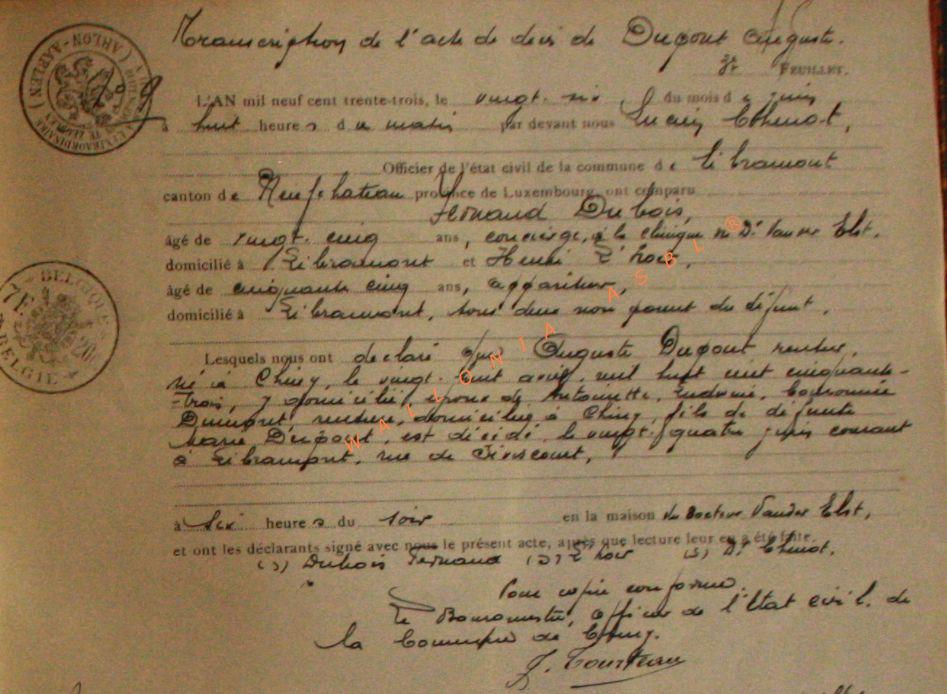 Transcription de l'acte de décès de Dupont Auguste.
FEUILLET.
L'AN mil neuf cent trente-trois, le vingt-six du mois de juin
à huit heures du matin par devant nous Lucien Thenot,
Officier de l'état civil de la commune de Libramont
canton de Neufchateau province de Luxembourg, ont comparu
Fernand Dubois,
âgé de vingt-cinq ans, concierge, à la clinique du Dr Vander Elst,
domicilié à Libramont et Henri
âgé de cinquante cinq ans, appariteur,
domicilié à Libramont, tous deux non parent du défunt,
Lesquels nous ont déclaré que Auguste Dupont, rentier,
né à Chiny, le vingt-huit avril mil huit cent cinquante-
-trois, y domicilié, époux de Antoinette,
Dumont, rentière, domiciliée à Chiny, fils de défunte
Marie Dupont, est décédé le vingt-quatre juin courant
à Libramont, rue de
à six heures du soir en la maison du Docteur Vander Elst,
et ont les déclarants signé avec nous le présent acte, après que lecture leur en a été faite.
(s) Dubois Fernand (s) (s) Dr Thenot.
Pour copie conforme.
Le Bourgmestre, officier de l'Etat civil de
la Commune de Chiny.
BELGIQUE
7F 20
BELGIE
ARLON-AARLEN
WALLONIA ASBL ®